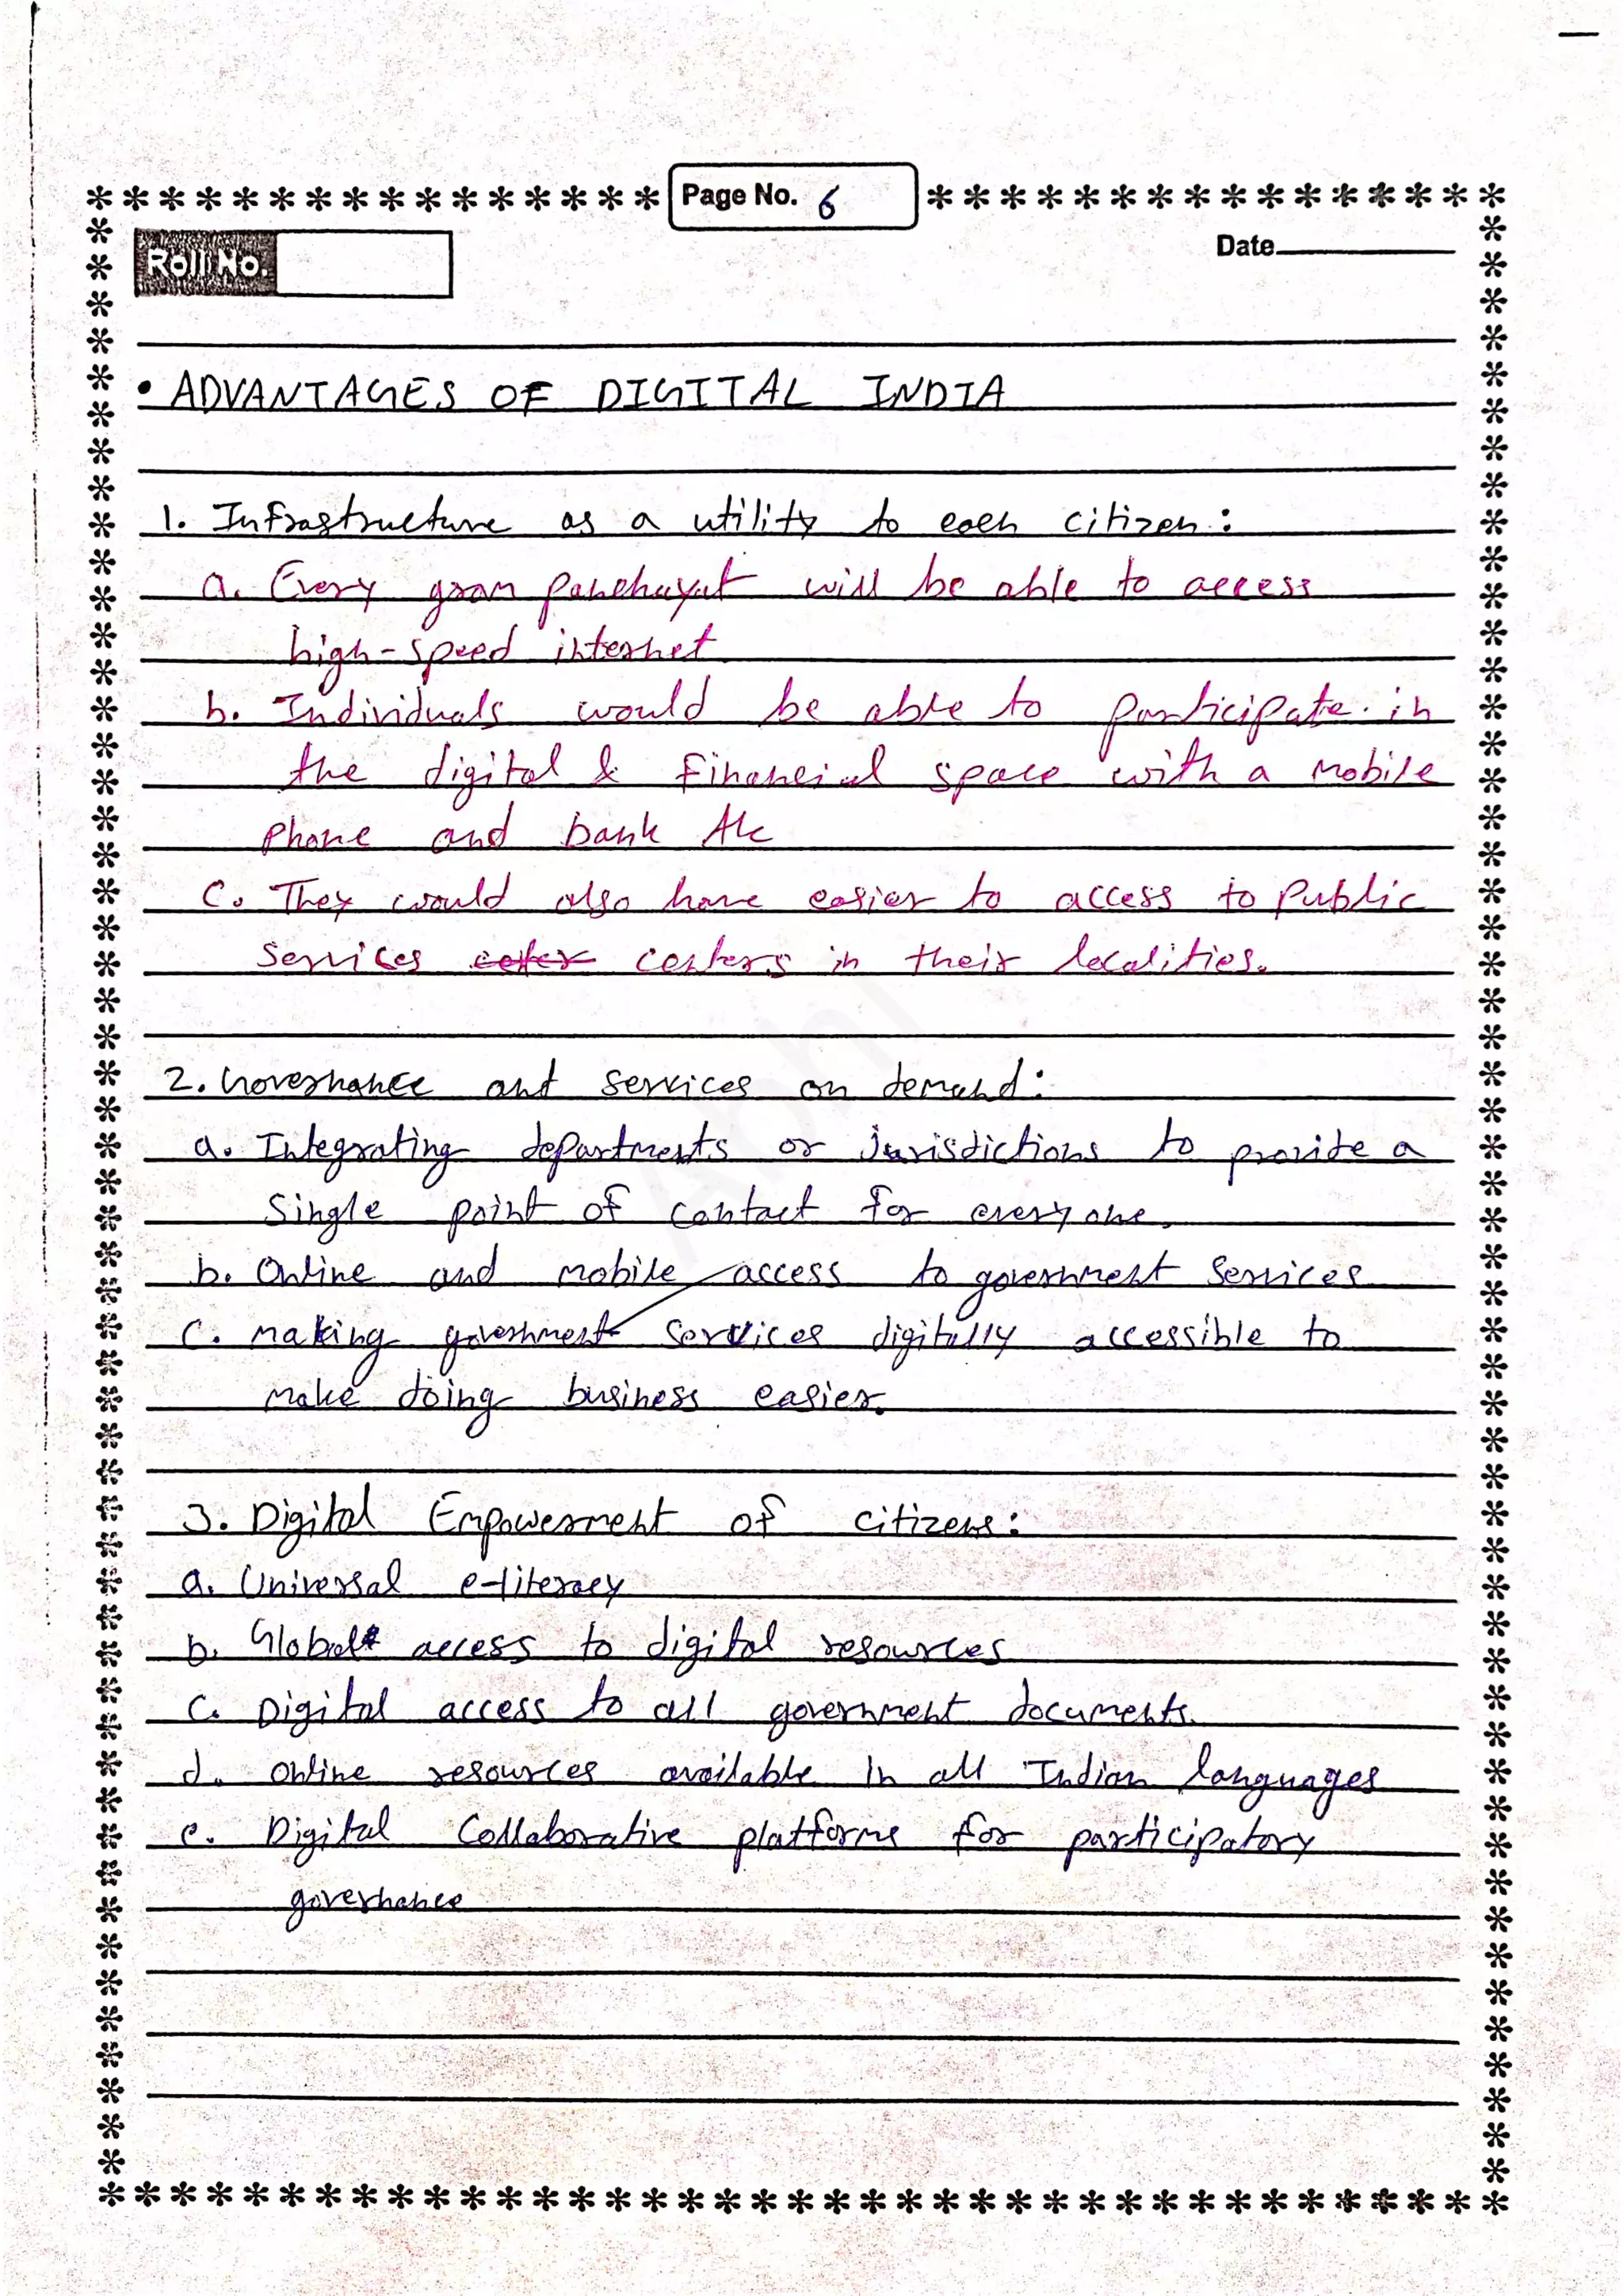 Page No. 6
Roll No.
Date
• ADVANTAGES OF DIGITAL INDIA
1. Infrastructure as a utility to each citizen:
a. Every gram panchayat will be able to access
high-speed internet
b. Individuals would be able to participate in
the digital & financial space with a mobile
phone and bank A/c
C. They would also have easier to access to Public
Services centers in their localities.
2. Governance and services on demand:
a. Integrating departments or jurisdictions to provide a
Single point of contact for everyone.
b. Online and mobile access to government Services
C. making government services digitally accessible to
make doing business easier.
3. Digital Empowerment of citizens:
a. Universal e-literacy
b. Global access to digital resources
C. Digital access to all government documents.
d. Online resources available in all Indian languages
e. Digital Collaborative platforms for participatory
governance